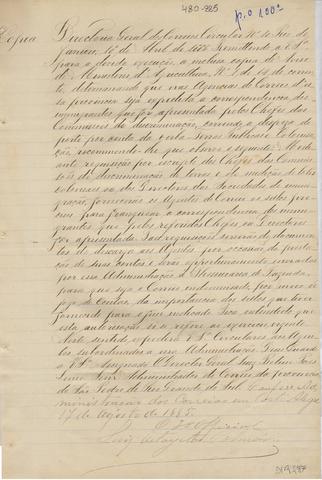 480-225
p.o 100ª
Copia
Directoria Geral dos Correios Circular Nº Rio de
Janeiro, 16 de Abril de 1885 Remettendo a Vª Sª
para a devida execução, a inclusa copia do Aviso
do Ministerio d'Agricultura Nº de 13 do corren
te, determinando que nas Agencias do Correio d'es
sa provincia seja expedida a correspondencia dos
immigrantes que fôr apresentada pelos Chefes das
Commissões de discriminação, correndo a despeza do
porte por conda da verba Terras Publicas e Colonisa
ção, recommendo de que observe o seguinte: Medi
ante requisição por escripto dos Chefes das Commis
sões de discriminação de terras e de medição de lotes
coloniaes ou dos Directores das Sociedades de immi
gração, fornecerão os Agentes do Correio os sellos pre
cisos para franquear a correspondencia dos immi
grantes que pelos referidos Chefes ou Directores
fôr apresentada. Taes requisições servirão de documentos
de descarga aos Agentes por occasião da presta
ção de suas contas e serão opportunamente enviadas
por essa Administração á Thesouraria de Fazenda
para que seja o Correio indemnisado, por meio de
jogo de contas, da importancia dos sellos que tiver
fornecido para o fim indicado. Fica entendido que
esta autorisação só se refere ao exercicio vigente.
N'este sentido expedirá Vª Sª Circulares aos Agen
tes subordinados a essa Administração. Deus Guarde
a Vª Sª Assignado O Director Geral
Administrador do Correio da provincia
de São Pedro do Rio Grande do Sul.
ministração dos Correios em Porto Alegre
17 de Agosto de 1885.
O 1º Official
Luiz